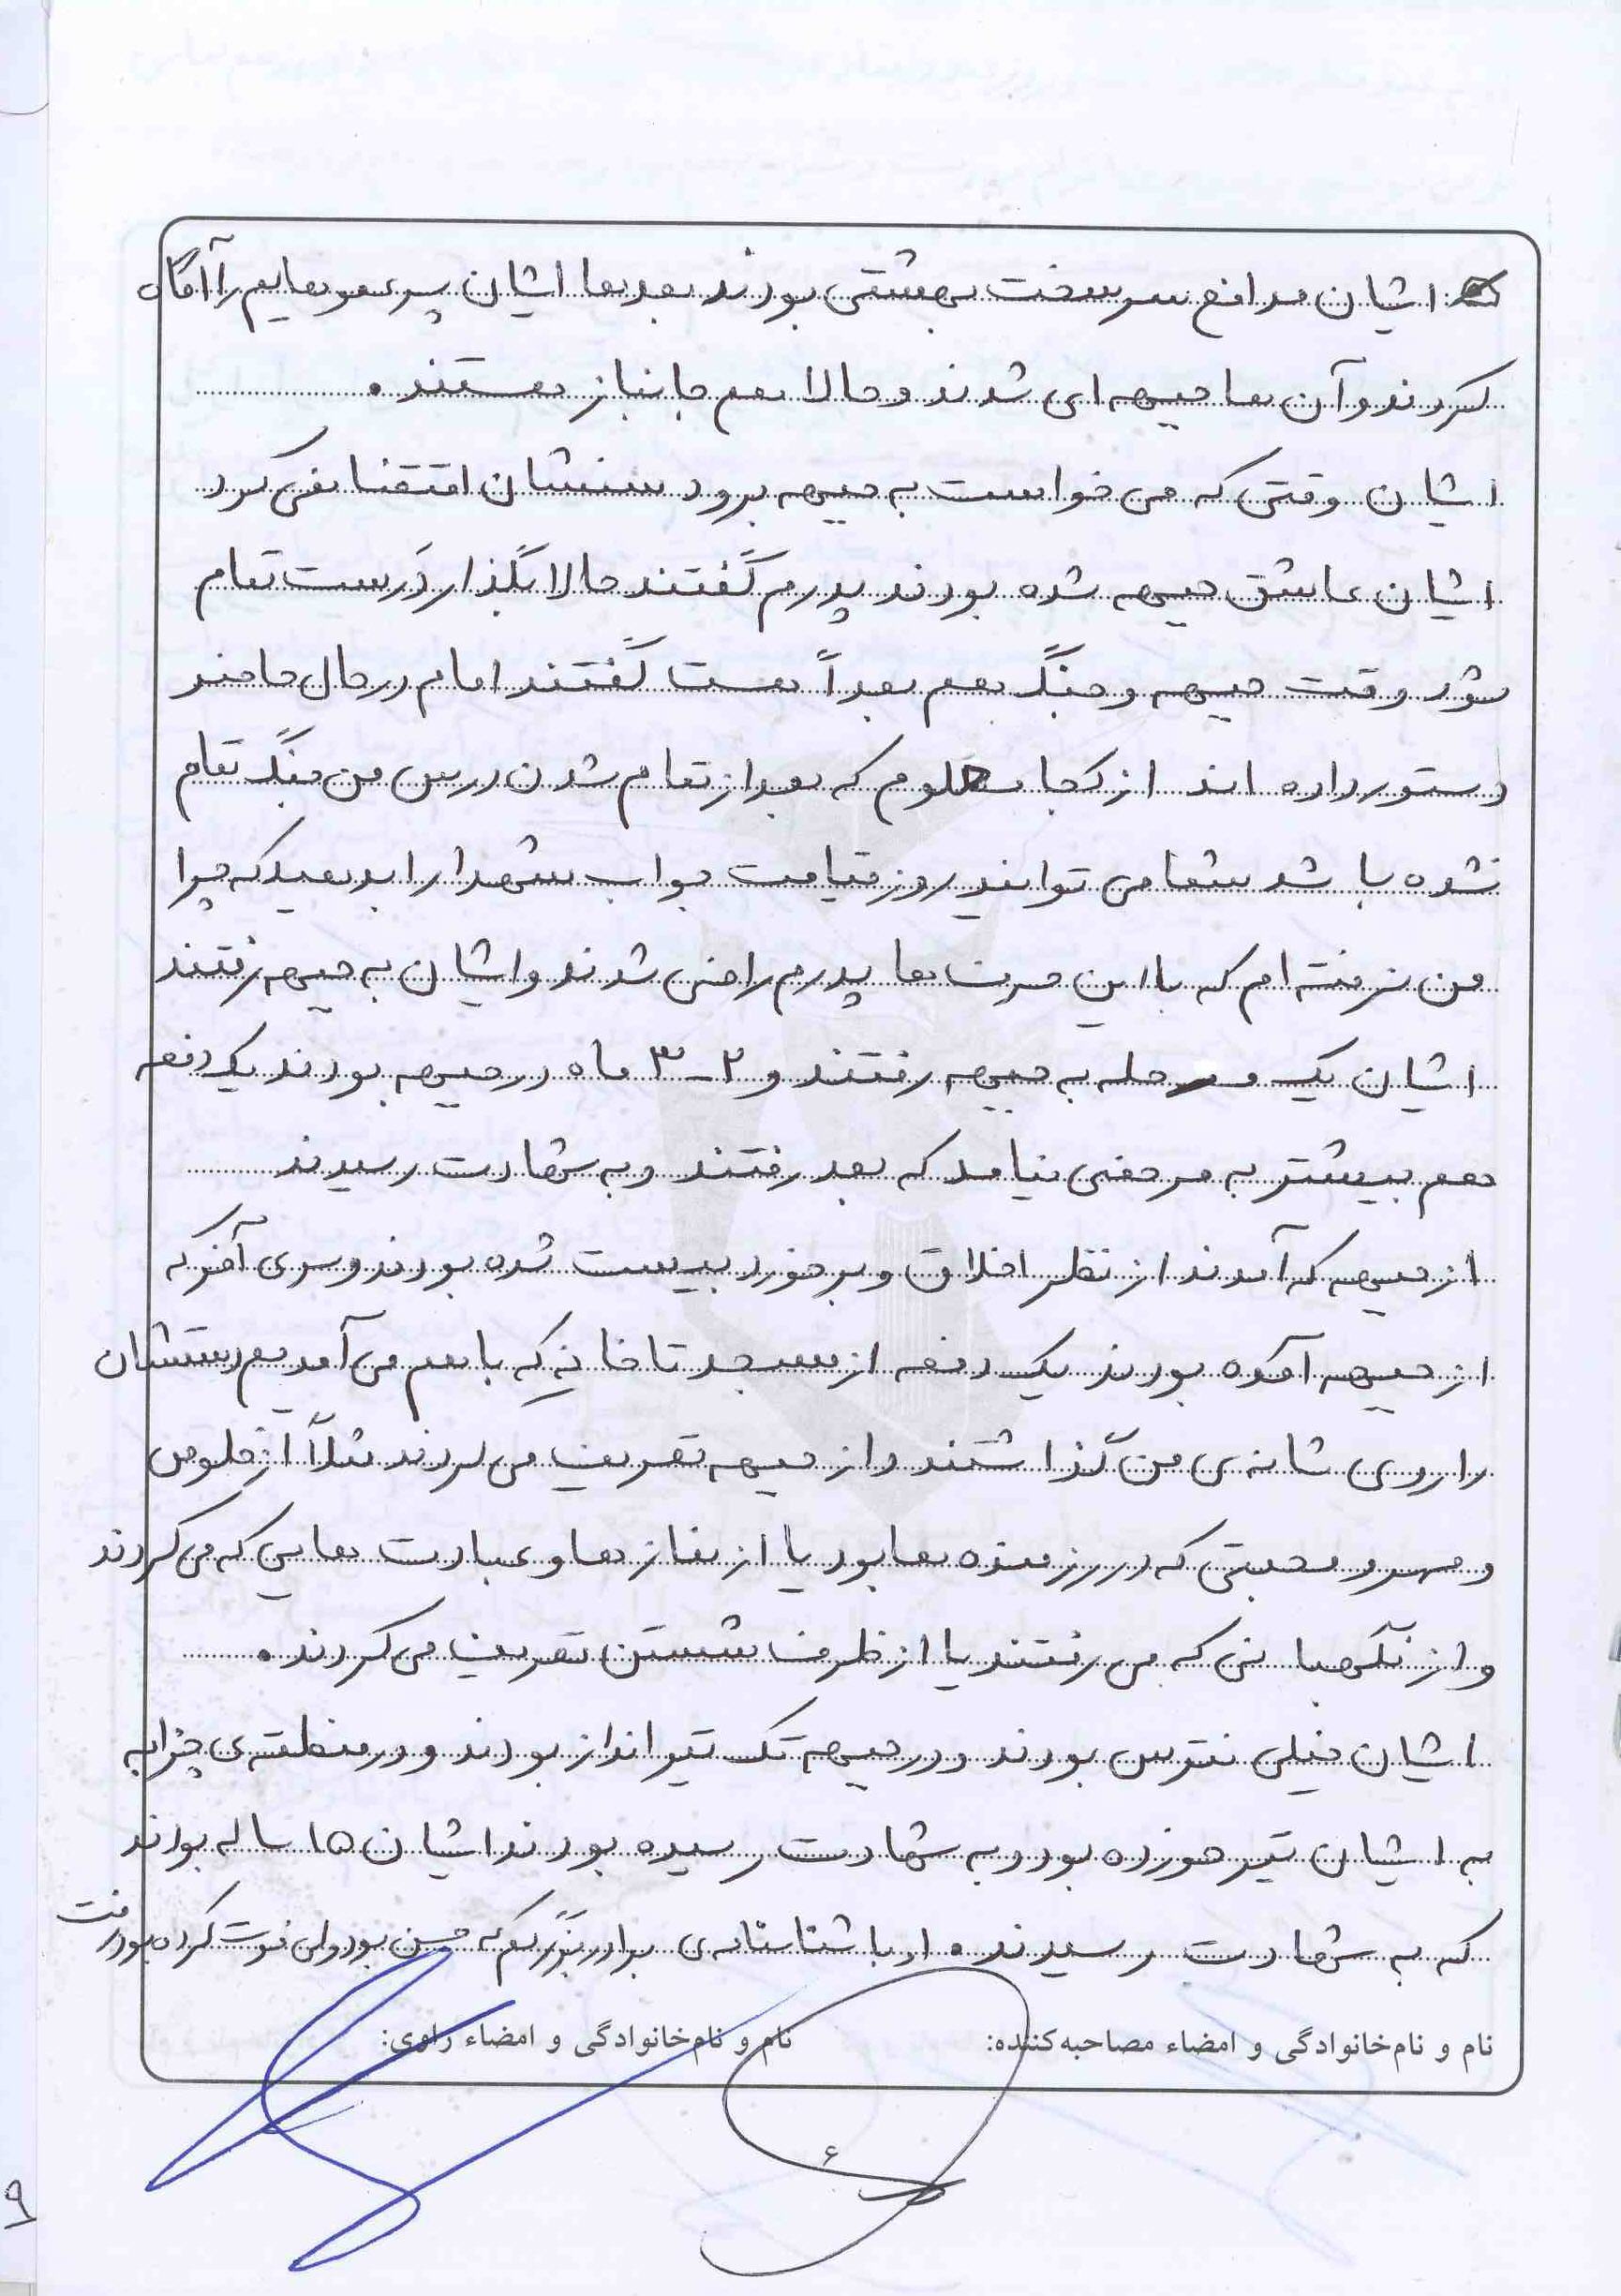 ایشان مدافع سرسخت بهشتی بودند بعدها ایشان پسرعموهایم را آگاه
کردند و آن ها جبهه ای شدند و حالا هم جانباز هستند.
ایشان وقتی که می خواست به جبهه برود سنشان اقتضا نمی کرد
ایشان عاشق جبهه شده بودند پدرم گفتند حالا بگذار دَرست تمام
شود وقت جبهه و جنگ هم بعداً هست گفتند امام در حال حاضر
دستور داده اند از کجا معلوم که بعد از تمام شدن درس من جنگ تمام
نشده باشد شما می توانید روز قیامت جواب شهدا را بدهید که چرا
من نرفته ام که با این حرف ها پدرم راضی شدند و ایشان به جبهه رفتند
ایشان یک مرحله به جبهه رفتند و ۲-۳ ماه در جبهه بودند یک دفعه
هم بیشتر به مرخصی نیامد که بعد رفتند و به شهادت رسیدند
از جبهه که آمدند از نظر اخلاق و برخورد بیست شده بودند و سری آخر که
از جبهه آمده بودند یک دفعه از مسجد تا خانه که با هم می آمدیم دستشان
را روی شانه ی من گذاشتند و از جبهه تعریف می کردند مثلاً از خلوص
و مهر و محبتی که در رزمنده ها بود یا از نماز ها و عبادت هایی که می کردند
و از نگهبانی که می رفتند یا از ظرف شستن تعریف می کردند.
ایشان خیلی نترس بودند و در جبهه تک تیرانداز بودند و در منطقه ی چزابه
به ایشان تیر خورده بود و به شهادت رسیده بودند ایشان ۱۵ ساله بودند
که به شهادت رسیدند. او با شناسنامه ی برادر بزرگم که حسن بود ولی فوت کرده بود رفت
نام و نام‌خانوادگی و امضاء مصاحبه‌کننده: نام و نام‌خانوادگی و امضاء راوی:
۶
۹